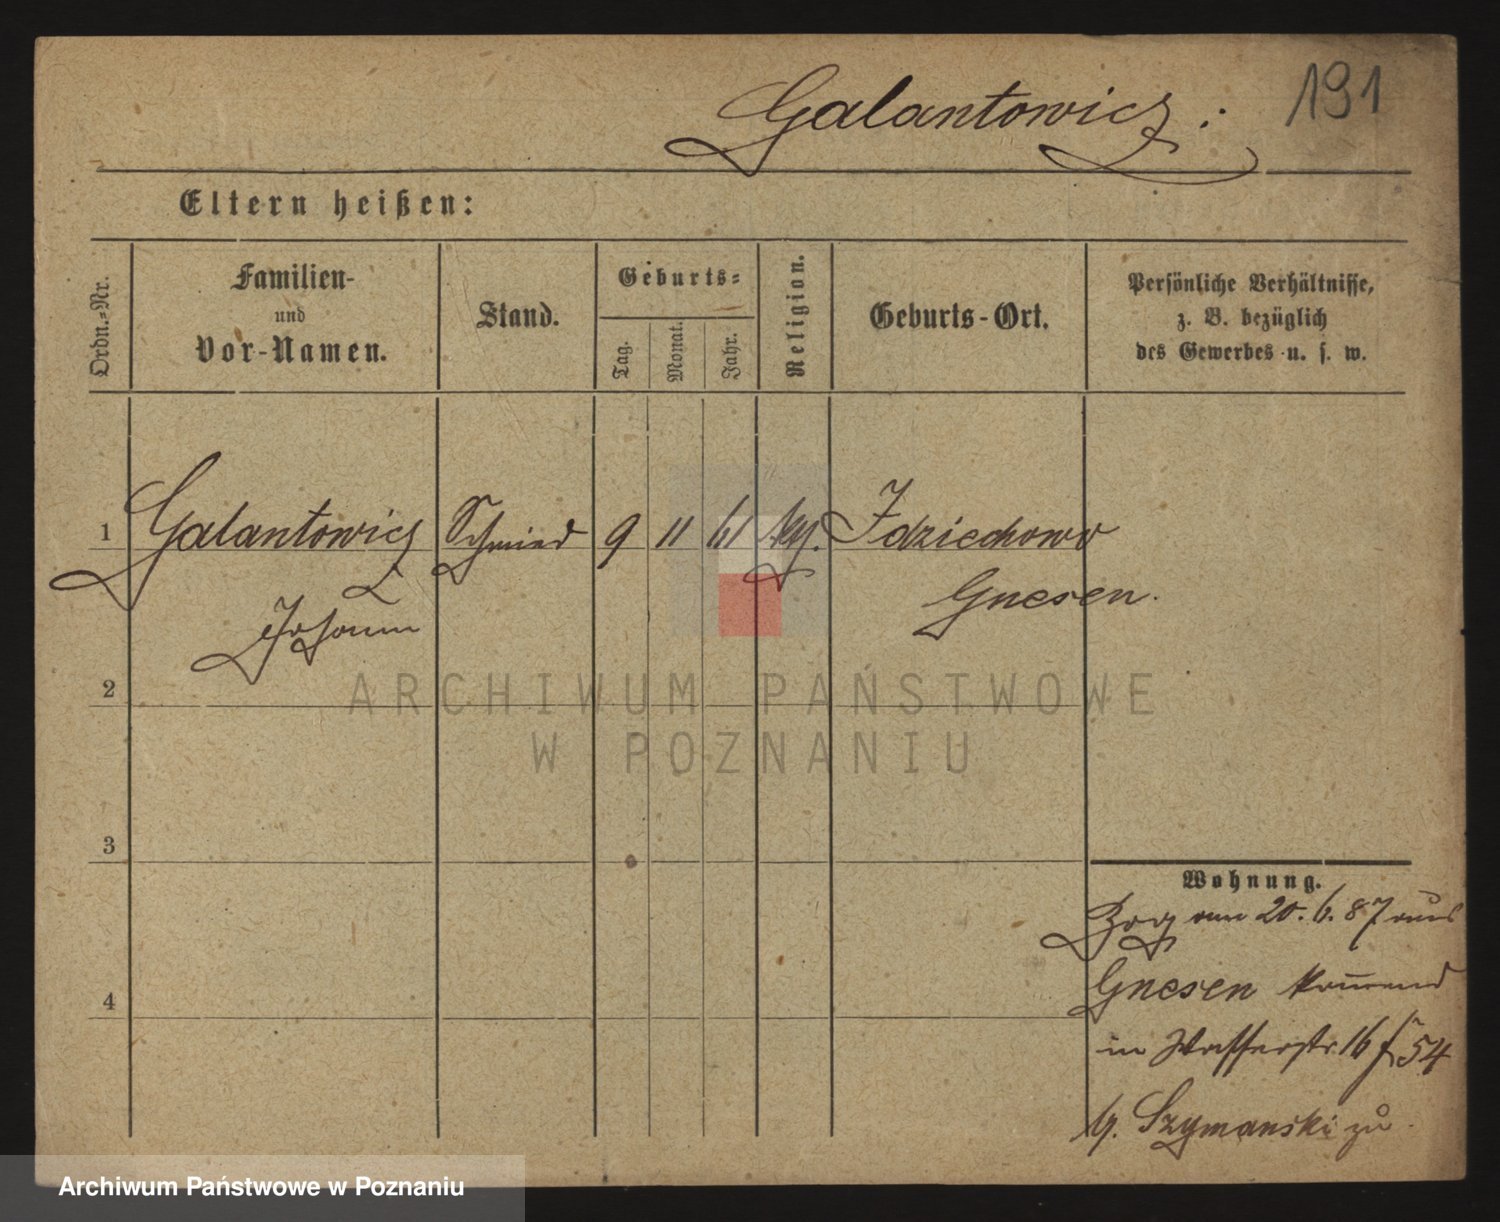 Galantowicz :
191
Eltern heißen:
Ordn.-Nr.
Familien-
und
Vor-Namen.
Stand.
Geburts-
Tag.
Monat.
Jahr.
Religion.
Geburts-Ort.
Persönliche Verhältnisse,
z. B. bezüglich
des Gewerbes u. s. w.
1 Galantowicz Schmied 9 11 61 Idziechowo
Johann Gnesen.
2
ARCHIWUM PAŃSTWOWE
W POZNANIU
3
Wohnung.
Zog am 20. 6. 87 aus
Gnesen kommend
in Wasserstr. 16 54
b. Szymanski zu.
4
Archiwum Państwowe w Poznaniu